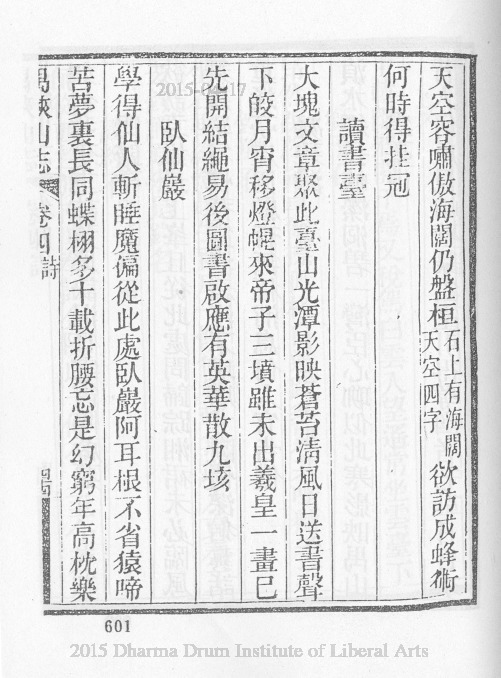 天空容嘯傲海闊仍盤桓石上有海闊天空四字欲訪成蜂術
何時得挂冠
讀書臺
大塊文章聚此臺山光潭影映蒼苔淸風日送書聲
下皎月宵移燈幌來帝子三墳雖未出羲皇一畫已
先開結繩易後圖書啟應有英華散九垓
臥仙巖
學得仙人斬睡魔偏從此處臥巖阿耳根不省猿啼
苦夢裏長同蝶栩多十載折腰忘是幻窮年高枕樂
禺峽山志 卷四 詩
601
2015-04-17
2015 Dharma Drum Institute of Liberal Arts